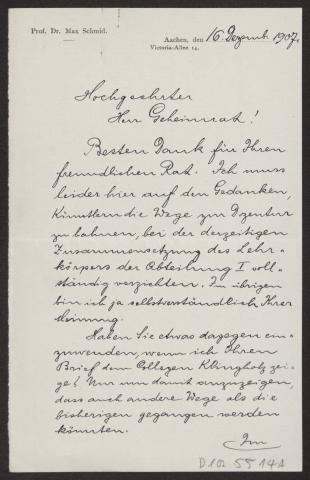 Prof. Dr. Max Schmid.
Aachen, den 16. Dezemb. 1907.
Victoria-Allee 14.
Hochgeehrter
Herr Geheimrat!
Besten Dank für Ihren
freundlichen Rat. Ich muss
leider hier auf den Gedanken,
Künstlern die Wege zur Dozentur
zu bahnen, bei der derzeitigen
Zusammensetzung des Lehr-
körpers der Abteilung I voll-
ständig verzichten. Im übrigen
bin ich ja selbstverständlich Ihrer
Meinung.
Haben Sie etwas dagegen ein-
zuwenden, wenn ich Ihren
Brief dem Collegen Klingholz zei-
ge? Nur um damit anzuzeigen,
dass auch andere Wege als die
bisherigen gegangen werden
könnten.
Im
D102 5514A